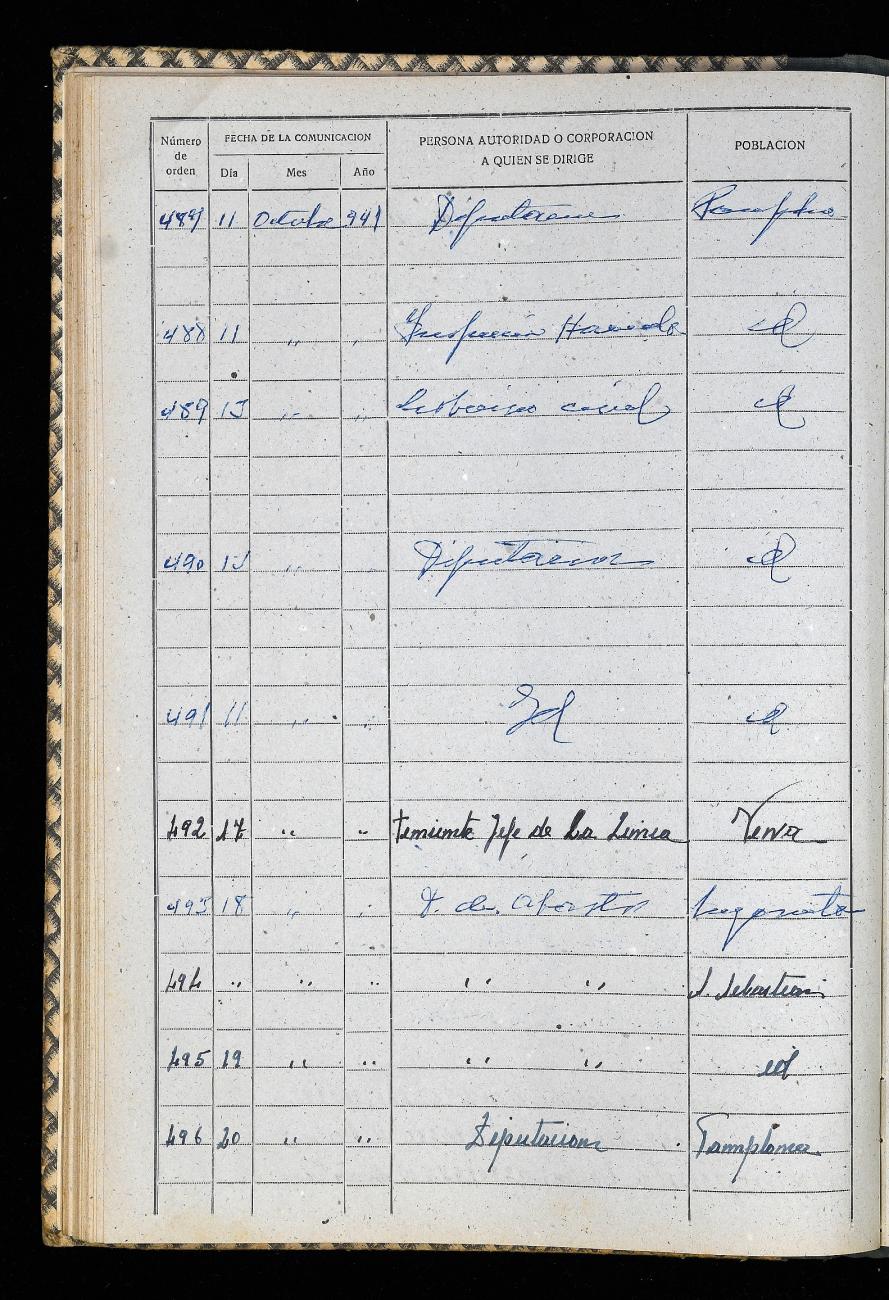 Número de orden FECHA DE LA COMUNICACION PERSONA AUTORIDAD O CORPORACION A QUIEN SE DIRIGE POBLACION
Día Mes Año
487 11 Octubre 941 Diputacion Pamplona
488 11 " " Inspeccion Hacienda Id
489 13 " " Gobierno civil Id
490 13 " " Diputacion Id
491 11 " " Id Id
492 17 " " teniente Jefe de La Linea Vera
493 18 " " D. de Abastos
494 " " " " " S. Sebastian
495 19 " " " " id
496 20 " " Diputacion Pamplona